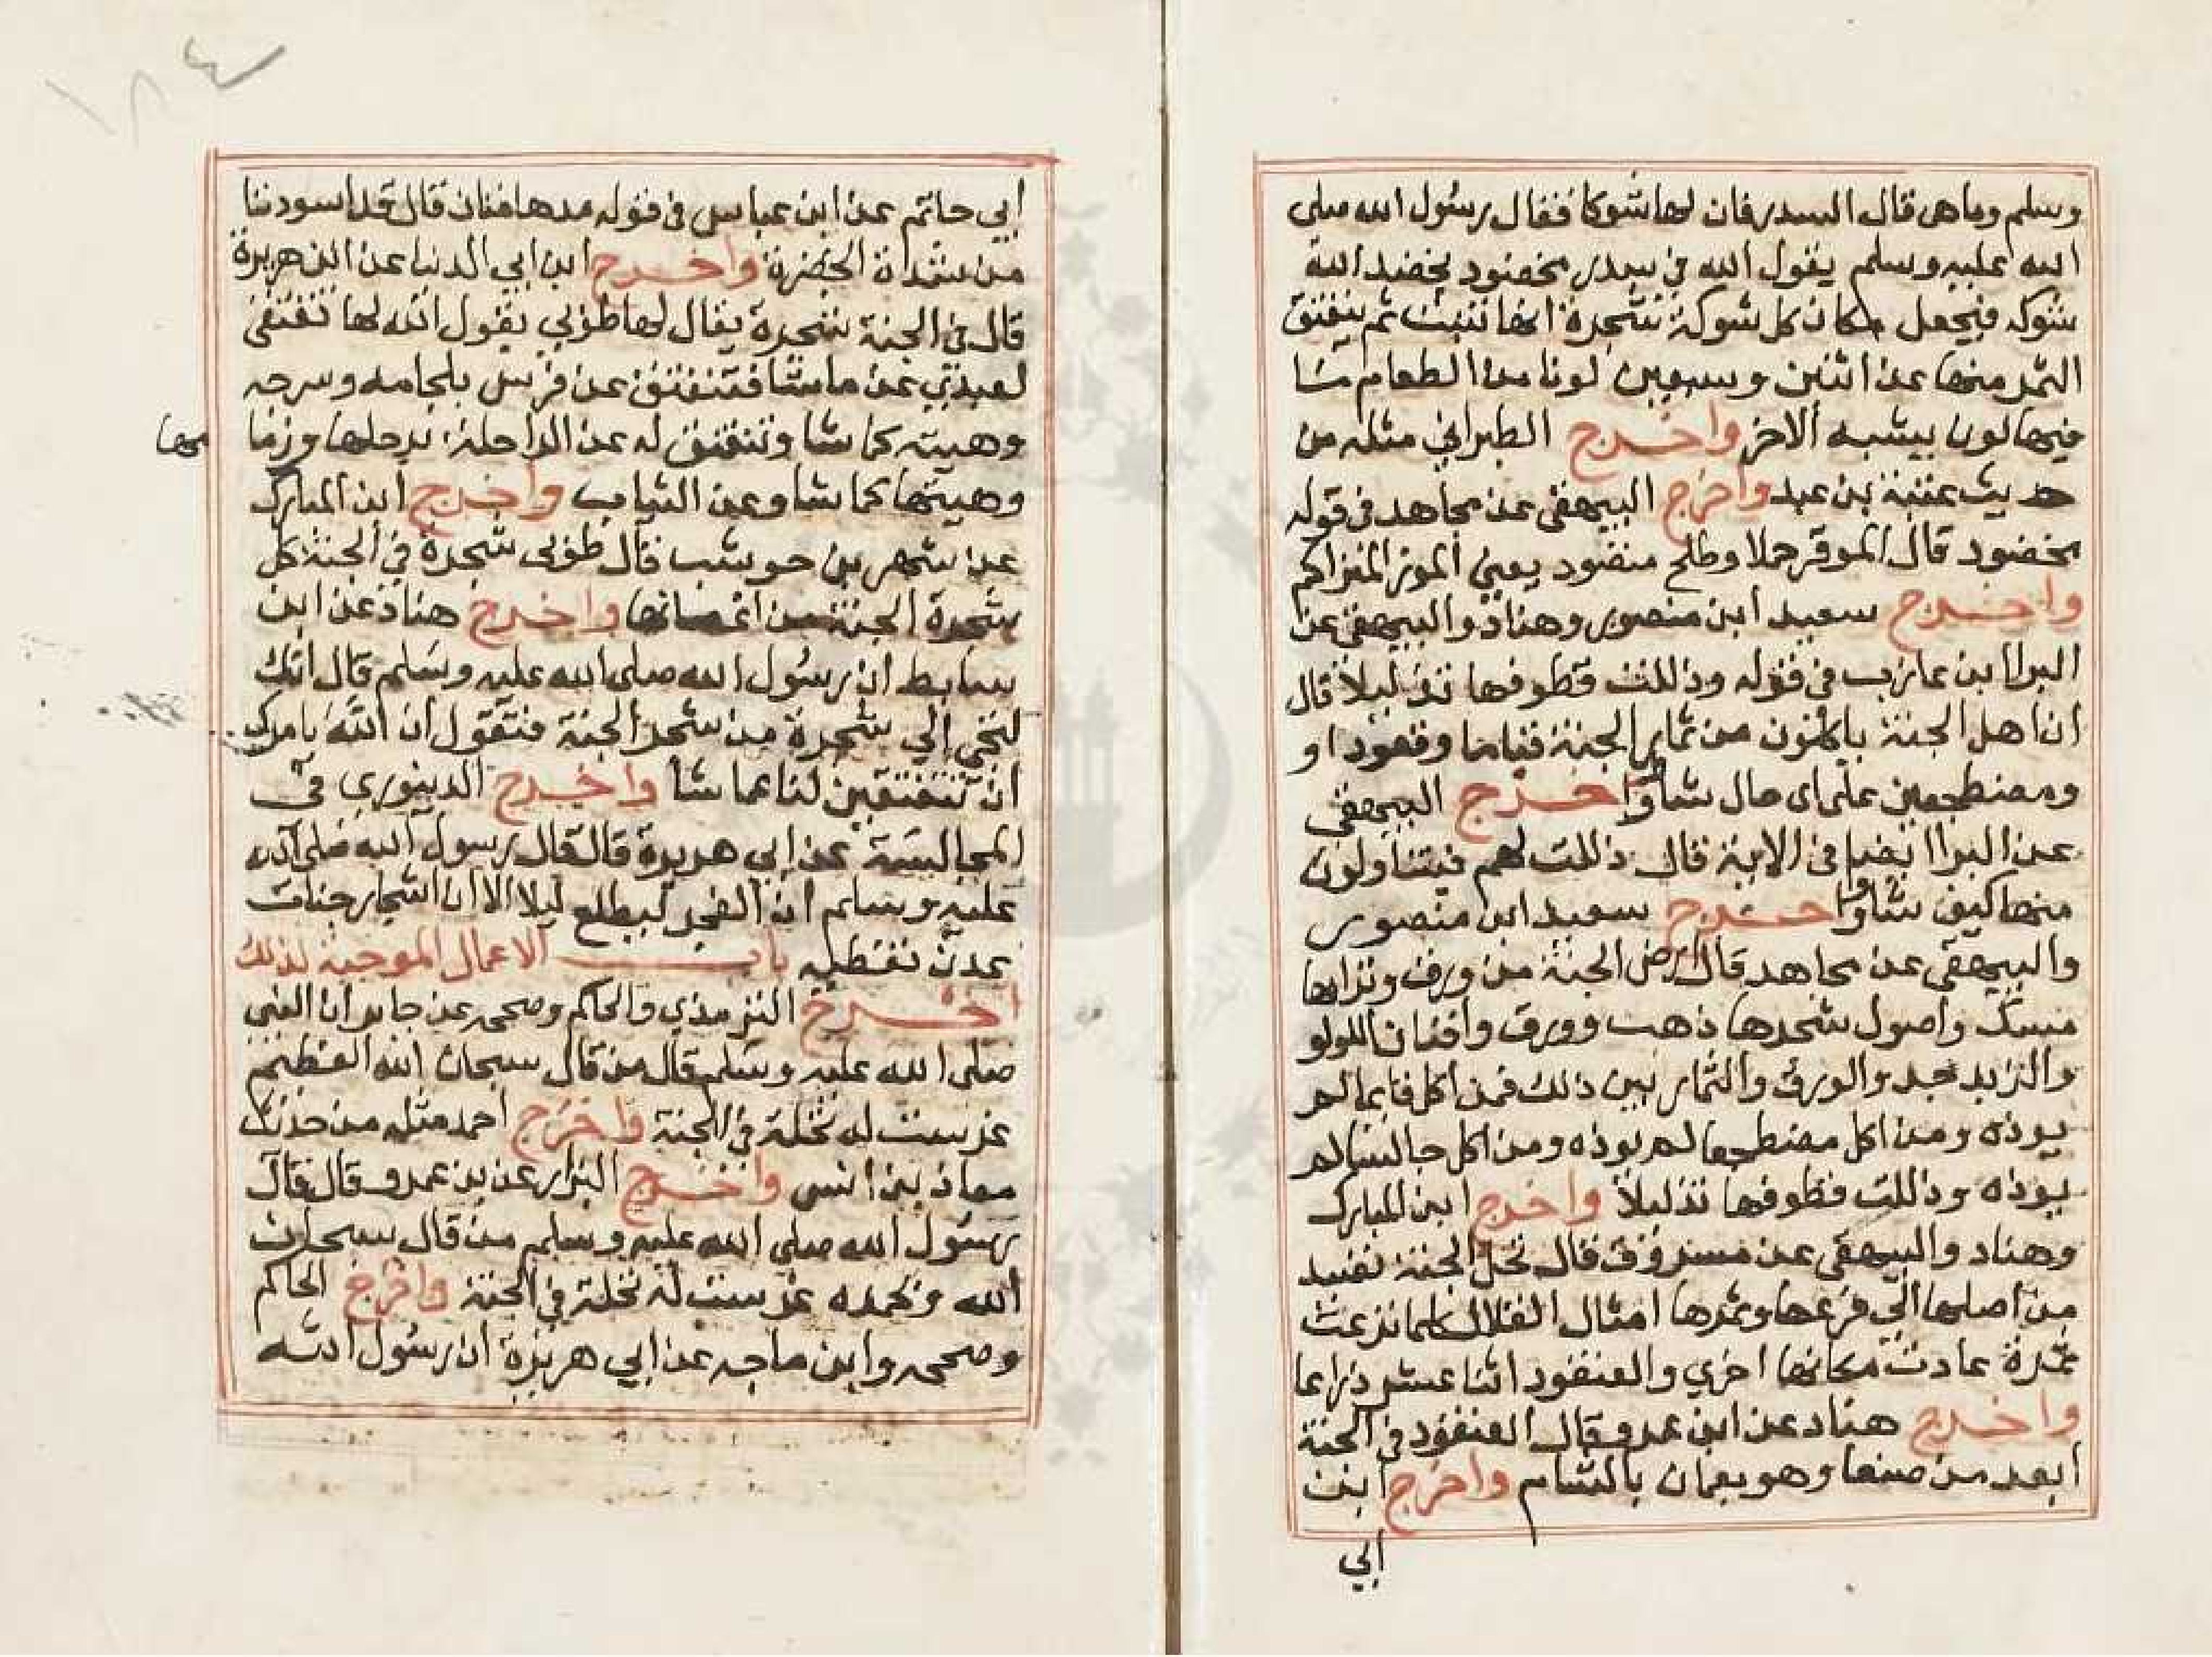 وسلم وما هي قال السدر فان لها شوكا فقال رسول الله صلى
الله عليه وسلم يقول الله في سدر مخضود يخضد الله
شوكه فيجعل مكان كل شوكة شجرة انها تنبت ثم ينفتق
الثمر منها عن اثنين وسبعين لونا من الطعام ما
فيها لون يشبه الاخر واخرج الطبراني مثله من
حديث عتبة بن عبد واخرج البيهقي عن مجاهد في قوله
مخضود قال الموقر حملا وطلح منضود يعني الموز المتراكم
واخرج سعيد ابن منصور وهناد والبيهقي عن
البرا ابن عازب في قوله وذللت قطوفها تذليلا قال
ان اهل الجنة ياكلون من ثمار الجنة قياما وقعودا و
ومضطجعين على اي حال شاوا واخرج البيهقي
عن البرا ايضا في الاية قال ذللت لهم فيتناولون
منها كيف شاوا واخرج سعيد ابن منصور
والبيهقي عن مجاهد قال ارض الجنة من ورق وترابها
مسك واصول شجرها ذهب وورق وافنان اللولو
والزبرجد والورق والثمار بين ذلك فمن اكل قايما لم
يوذه ومن اكل مضطجعا لم يوذه ومن اكل جالسا لم
يوذه وذللت قطوفها تذليلا واخرج ابن المبارك
وهناد والبيهقي عن مسروق قال نخل الجنة نضيد
من اصلها الي فرعها وثمرها امثال القلال كلما نزعت
ثمرة عادت مكانها اخري والعنقود اثنا عشر ذراعا
واخرج هناد عن ابن عمرو قال العنقود في الجنة
ابعد من صنعا وهو بعمان بالشام واخرج ابن
ابي
١٨٤
ابي حاتم عن ابن عباس في قوله مدهامتان قال قد اسودتا
من شدة الخضرة واخرج ابن ابي الدنيا عن ابي هريرة
قال في الجنة شجرة يقال لها طوبي يقول الله لها تفتقي
لعبدي عن ما شا فتنفتق عن فرس بلجامه وسرجه
وهيته كما شا وتنفتق له عن الراحلة برحلها وزمامها
وهيتها كما شا وعن الثياب واخرج ابن المبارك
عن شهر بن حوشب قال طوبي شجرة في الجنة كل
شجرة الجنة من اغصانها واخرج هناد عن ابن
سابط ان رسول الله صلى الله عليه وسلم قال انك
لتجي الي شجرة من شجر الجنة فتقول ان الله يامرك
ان تتفتقين لنا عما شا واخرج الدينوري في
المجالسة عن ابي هريرة قال قال رسول الله صلى الله
عليه وسلم ان الفجر ليطلع ليلا الا ان اشجار جنات
عدن تغطيه باب الاعمال الموجبة لذلك
اخرج الترمذي والحاكم وصححه عن جابر ان النبي
صلى الله عليه وسلم قال من قال سبحان الله العظيم
غرست له نخلة في الجنة واخرج احمد مثله من حديث
معاذ بن انس واخرج البزار عن بن عمرو قال قال
رسول الله صلى الله عليه وسلم من قال سبحان
الله وبحمده غرست له نخلة في الجنة واخرج الحاكم
وصححه وابن ماجه عن ابي هريرة ان رسول الله